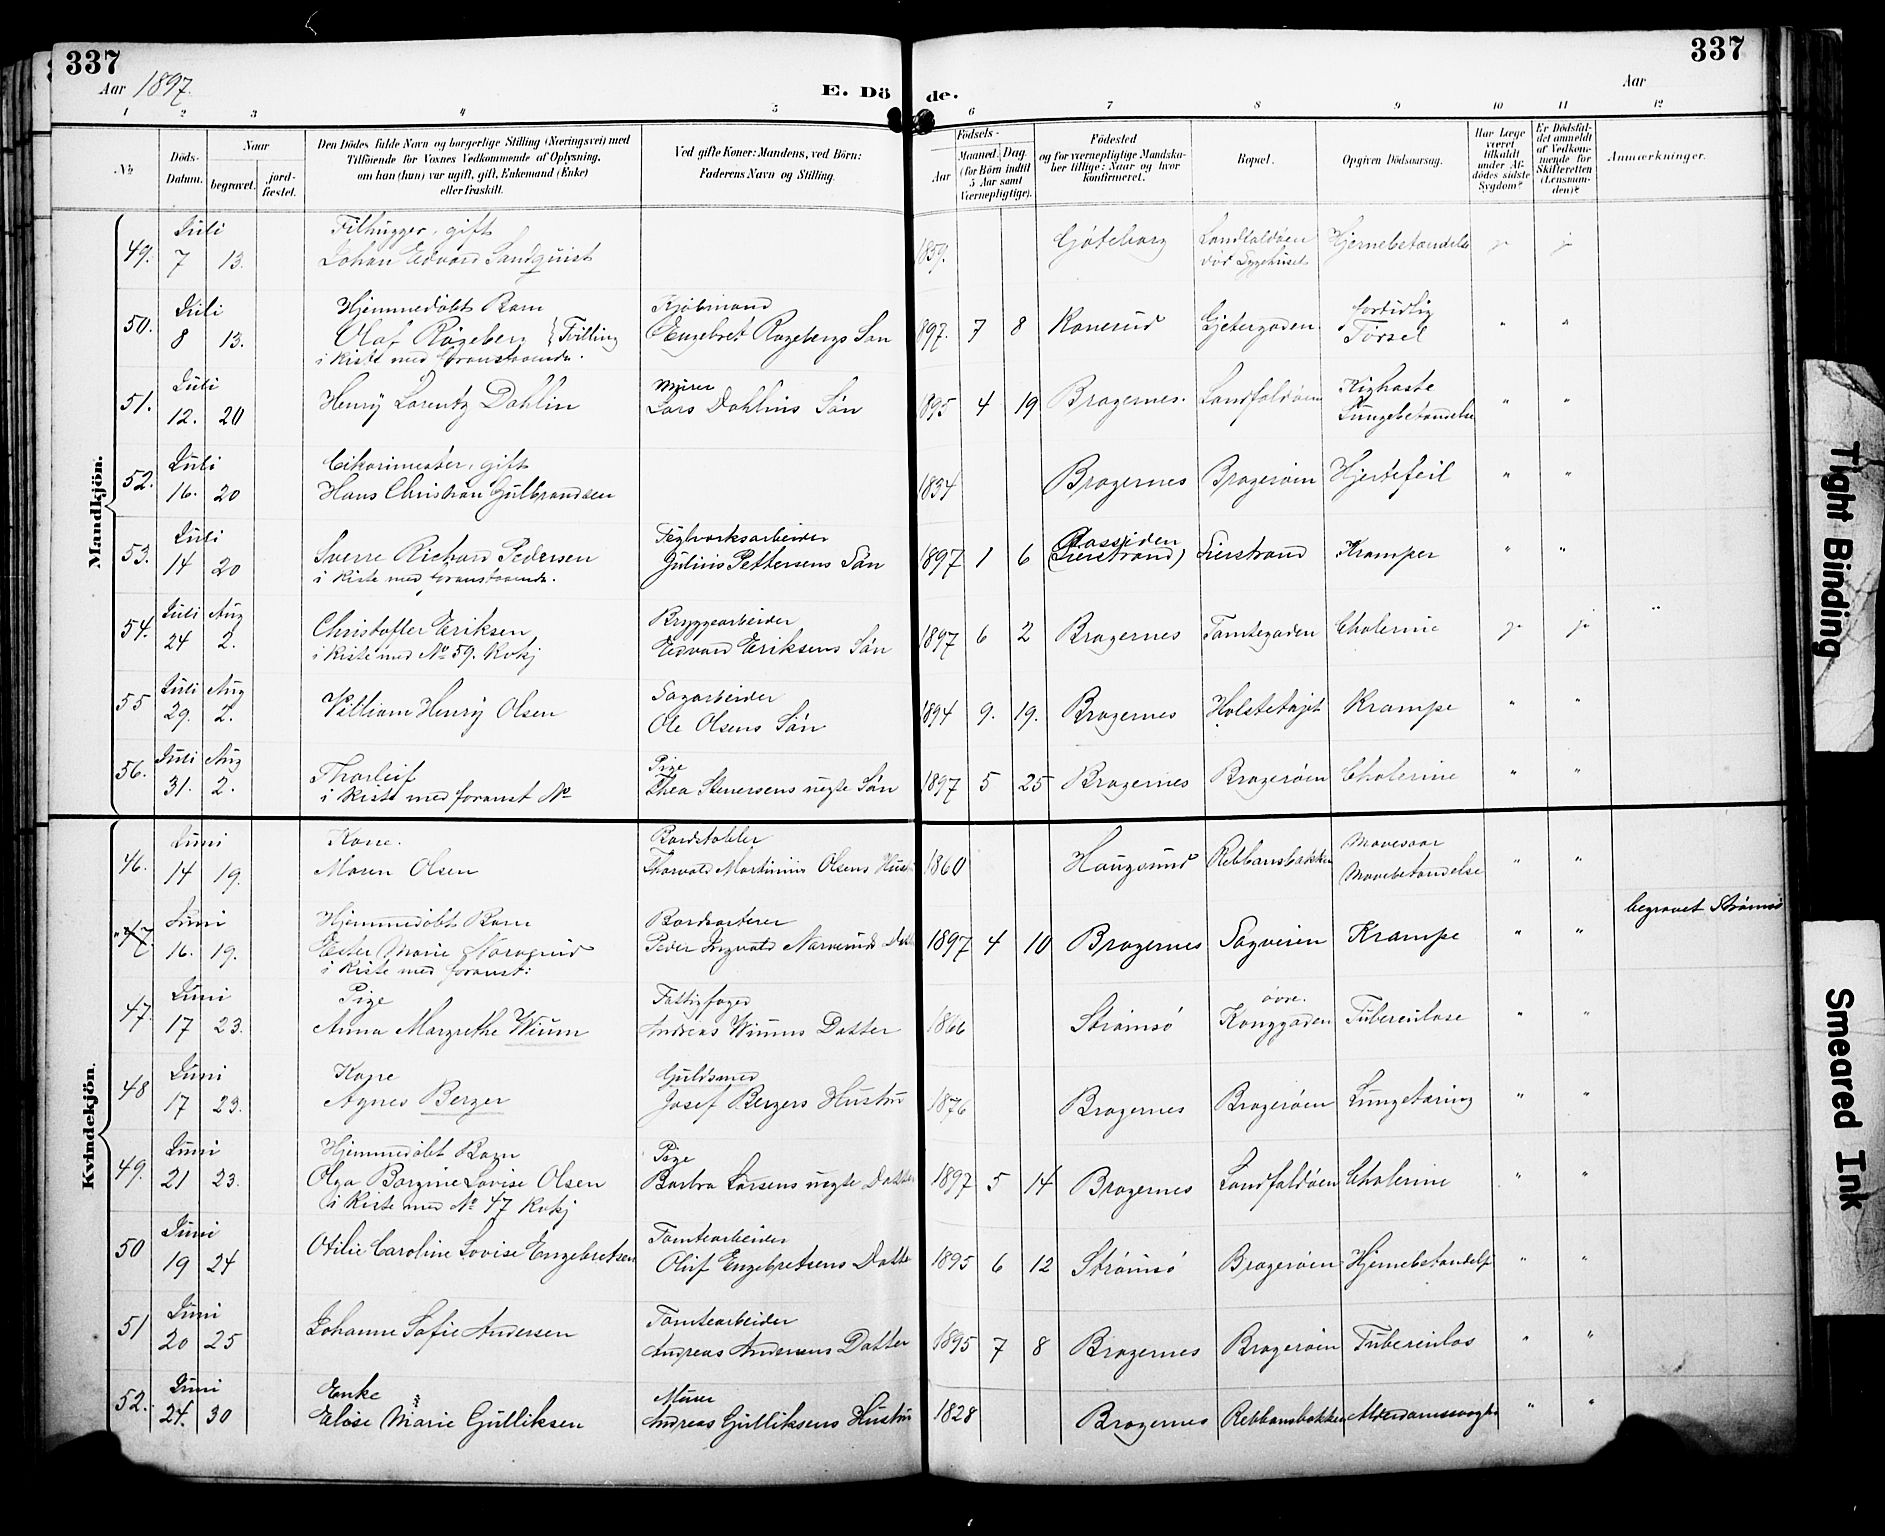 337
337
Aar 1897.
E. Döde.
Aar
1 2 3 4 5 6 7 8 9 10 11 12
No
Döds-Datum.
Naar
begravet.
jord-fæstet.
Den Dödes fulde Navn og borgerlige Stilling (Næringsvei) med
Tilföiende for Voxnes Vedkommende af Oplysning,
om han (hun) var ugift, gift, Enkemand (Enke)
eller fraskilt.
Ved gifte Koner: Mandens, ved Börn:
Faderens Navn og Stilling.
Födsels-
Aar
Maaned. Dag.
(for Börn indtil
5 Aar samt
Værnepligtige).
Födested
og for værnepligtige Mandska-
ber tillige: Naar og hvor
konfirmeret.
Bopæl.
Opgiven Dödsaarsag.
Har Læge
været
tilkaldt
under Af-
dödes sidste
Sygdom?
Er Dödsfal-
det anmeldt
af Vedkom-
mende for
Skifteretten
(Lensman-
den)?
Anmærkninger.
Mandkjön.
49. Juli 7 13. Filhugger, gift
Johan Edvard Sandquist 1859. Göteborg Landfaldöen
död Sygehuset Hjernebetændelse ja ja
50. Juli 8 13. Hjemmedöbt Barn
Olaf Rögeberg } Tvilling
i kiste med foranstaaende.
Kjöbmand
Engebret Rogebergs Sön 1897. 7 8 Konerud Gjetergaden fortidlig
Försel " "
51. Juli 12. 20 Henrÿ Lorentz Dahlin
Murer
Lars Dahlins Sön 1895 4 19 Bragernes. Landfaldöen Kighoste
Lungebetændelse " "
52. Juli 16. 20 Cikorimester, gift
Hans Christian Gulbrandsen 1834 Bragernes Bragerøen Hjertefeil " "
53. Juli 14 20 Sverre Richard Pedersen
i kiste med foranstaaende.
Teglverksarbeider
Julius Pettersens Sön 1897 1 6 Stassiden
(Lierstrand) Lierstrand Kramper " "
54. Juli 24 Aug 2. Christoffer Eriksen
i kiste med No 59. Kvkj
Bryggearbeider
Edvard Eriksens Sön 1897 6 2 Bragernes Tomtegaden Cholerine ja ja "
55 Juli 29. Aug 2. William Henrÿ Olsen
Sagarbeider
Ole Olsens Sön 1894 9. 19. Bragernes Holstetöiet Krampe " "
56. Juli 31. Aug 2. Thorleif
i kiste med foranst No
Pige
Thea Stenersens uegte Sön 1897 5 25 Bragernes Bragerøen Cholerine " "
Kvindekjön.
46. Juni 14 19. Kone.
Maren Olsen
Bordstabler
Thorvald Martinius Olsens Hustr 1860 Hougsund Rebbansbakken Mavesaar
Mavebetændelse " "
"47. Juni 16. 19. Hjemmedöbt Barn
Ester Marie Narverud
i kiste med foranst:
Bordsorterer
Peder Ingvald Narveruds Datt 1897 4 10 Bragernes Sagveien Krampe " " begravet Strømsö
47. Juni 17 23. Pige
Anna Margrethe Wiuum
Fattigfoged
Andreas Wiuums Datter 1866 Strömsö övre.
Konggaden Tuberculose " "
48 Juni 17 23. Kone
Agnes Berger
Guldsmed
Josef Bergers Hustru 1876 Bragernes Bragerøen Lungetæring " "
49. Juni 21 23. Hjemmedöbt Barn
Olga Borgine Lovise Olsen
i kiste med No 47 Kvkj
Pige
Barbra Larsens uegte Datter 1897 5 14 Bragernes Landfaldöen Cholerine " "
50 Juni 19 24 Otilie Caroline Lovise Engebretsen
Tomtearbeider
Oluf Engebretsens Datte 1895 6 12 Strömsö Bragerøen Hjernebetændels " "
51 Juni 20 25 Johanne Sofie Andersen
Tomtearbeider
Andreas Andersens Datter 1895 7 8 Bragernes Bragerøen Tuberculos " "
52. Juni 24. 30 Enke
Elise Marie Gulliksen
Murer
Andreas Gulliksens Hustru 1828 Bragernes Rebbansbakken Alderdomssvaghe " "
Tight Binding
Smeared Ink